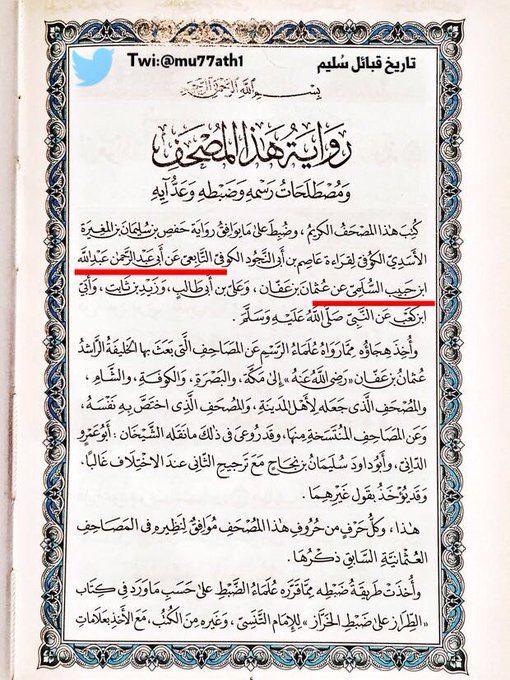 تاريخ قبائل سُليم
Twi:@mu77ath1
بِسْمِ اللَّهِ الرَّحْمَٰنِ الرَّحِيمِ
رِوَايَةُ هَذَا المُصْحَفِ
وَمُصْطَلَحَاتُ رَسْمِهِ وَضَبْطِهِ وَعَدِّ آيِهِ
كُتِبَ هَذَا المُصْحَفُ الكَرِيمُ، وَضُبِطَ عَلَى مَا يُوَافِقُ رِوَايَةَ حَفْصِ بْنِ سُلَيْمَانَ بْنِ المُغِيرَةِ
الأَسَدِيِّ الكُوفِيِّ لِقِرَاءَةِ عَاصِمِ بْنِ أَبِي النَّجُودِ الكُوفِيِّ التَّابِعِيِّ عَنْ أَبِي عَبْدِ الرَّحْمَنِ عَبْدِ اللَّهِ
ابْنِ حَبِيبٍ السُّلَمِيِّ عَنْ عُثْمَانَ بْنِ عَفَّانَ، وَعَلِيِّ بْنِ أَبِي طَالِبٍ، وَزَيْدِ بْنِ ثَابِتٍ، وَأُبَيِّ
ابْنِ كَعْبٍ عَنِ النَّبِيِّ صَلَّى اللَّهُ عَلَيْهِ وَسَلَّمَ.
وَأُخِذَ هِجَاؤُهُ مِمَّا رَوَاهُ عُلَمَاءُ الرَّسْمِ عَنِ المَصَاحِفِ الَّتِي بَعَثَ بِهَا الخَلِيفَةُ الرَّاشِدُ
عُثْمَانُ بْنُ عَفَّانَ «رَضِيَ اللَّهُ عَنْهُ» إِلَى مَكَّةَ، وَالبَصْرَةِ، وَالكُوفَةِ، وَالشَّامِ،
وَالمُصْحَفِ الَّذِي جَعَلَهُ لِأَهْلِ المَدِينَةِ، وَالمُصْحَفِ الَّذِي اخْتَصَّ بِهِ نَفْسَهُ،
وَعَنِ المَصَاحِفِ المُنْتَسَخَةِ مِنْهَا، وَقَدْ رُوعِيَ فِي ذَلِكَ مَا نَقَلَهُ الشَّيْخَانِ: أَبُو عَمْرٍو
الدَّانِيُّ، وَأَبُو دَاوُدَ سُلَيْمَانُ بْنُ نَجَاحٍ مَعَ تَرْجِيحِ الثَّانِي عِنْدَ الاخْتِلَافِ غَالِبًا،
وَقَدْ يُؤْخَذُ بِقَوْلِ غَيْرِهِمَا.
هَذَا، وَكُلُّ حَرْفٍ مِنْ حُرُوفِ هَذَا المُصْحَفِ مُوَافِقٌ لِنَظِيرِهِ فِي المَصَاحِفِ
العُثْمَانِيَّةِ السَّابِقِ ذِكْرُهَا.
وَأُخِذَتْ طَرِيقَةُ ضَبْطِهِ مِمَّا قَرَّرَهُ عُلَمَاءُ الضَّبْطِ عَلَى حَسَبِ مَا وَرَدَ فِي كِتَابِ
«الطِّرَازِ عَلَى ضَبْطِ الخَرَّازِ» لِلْإِمَامِ التَّنَسِيِّ، وَغَيْرِهِ مِنَ الكُتُبِ، مَعَ الأَخْذِ بِعَلَامَاتِ